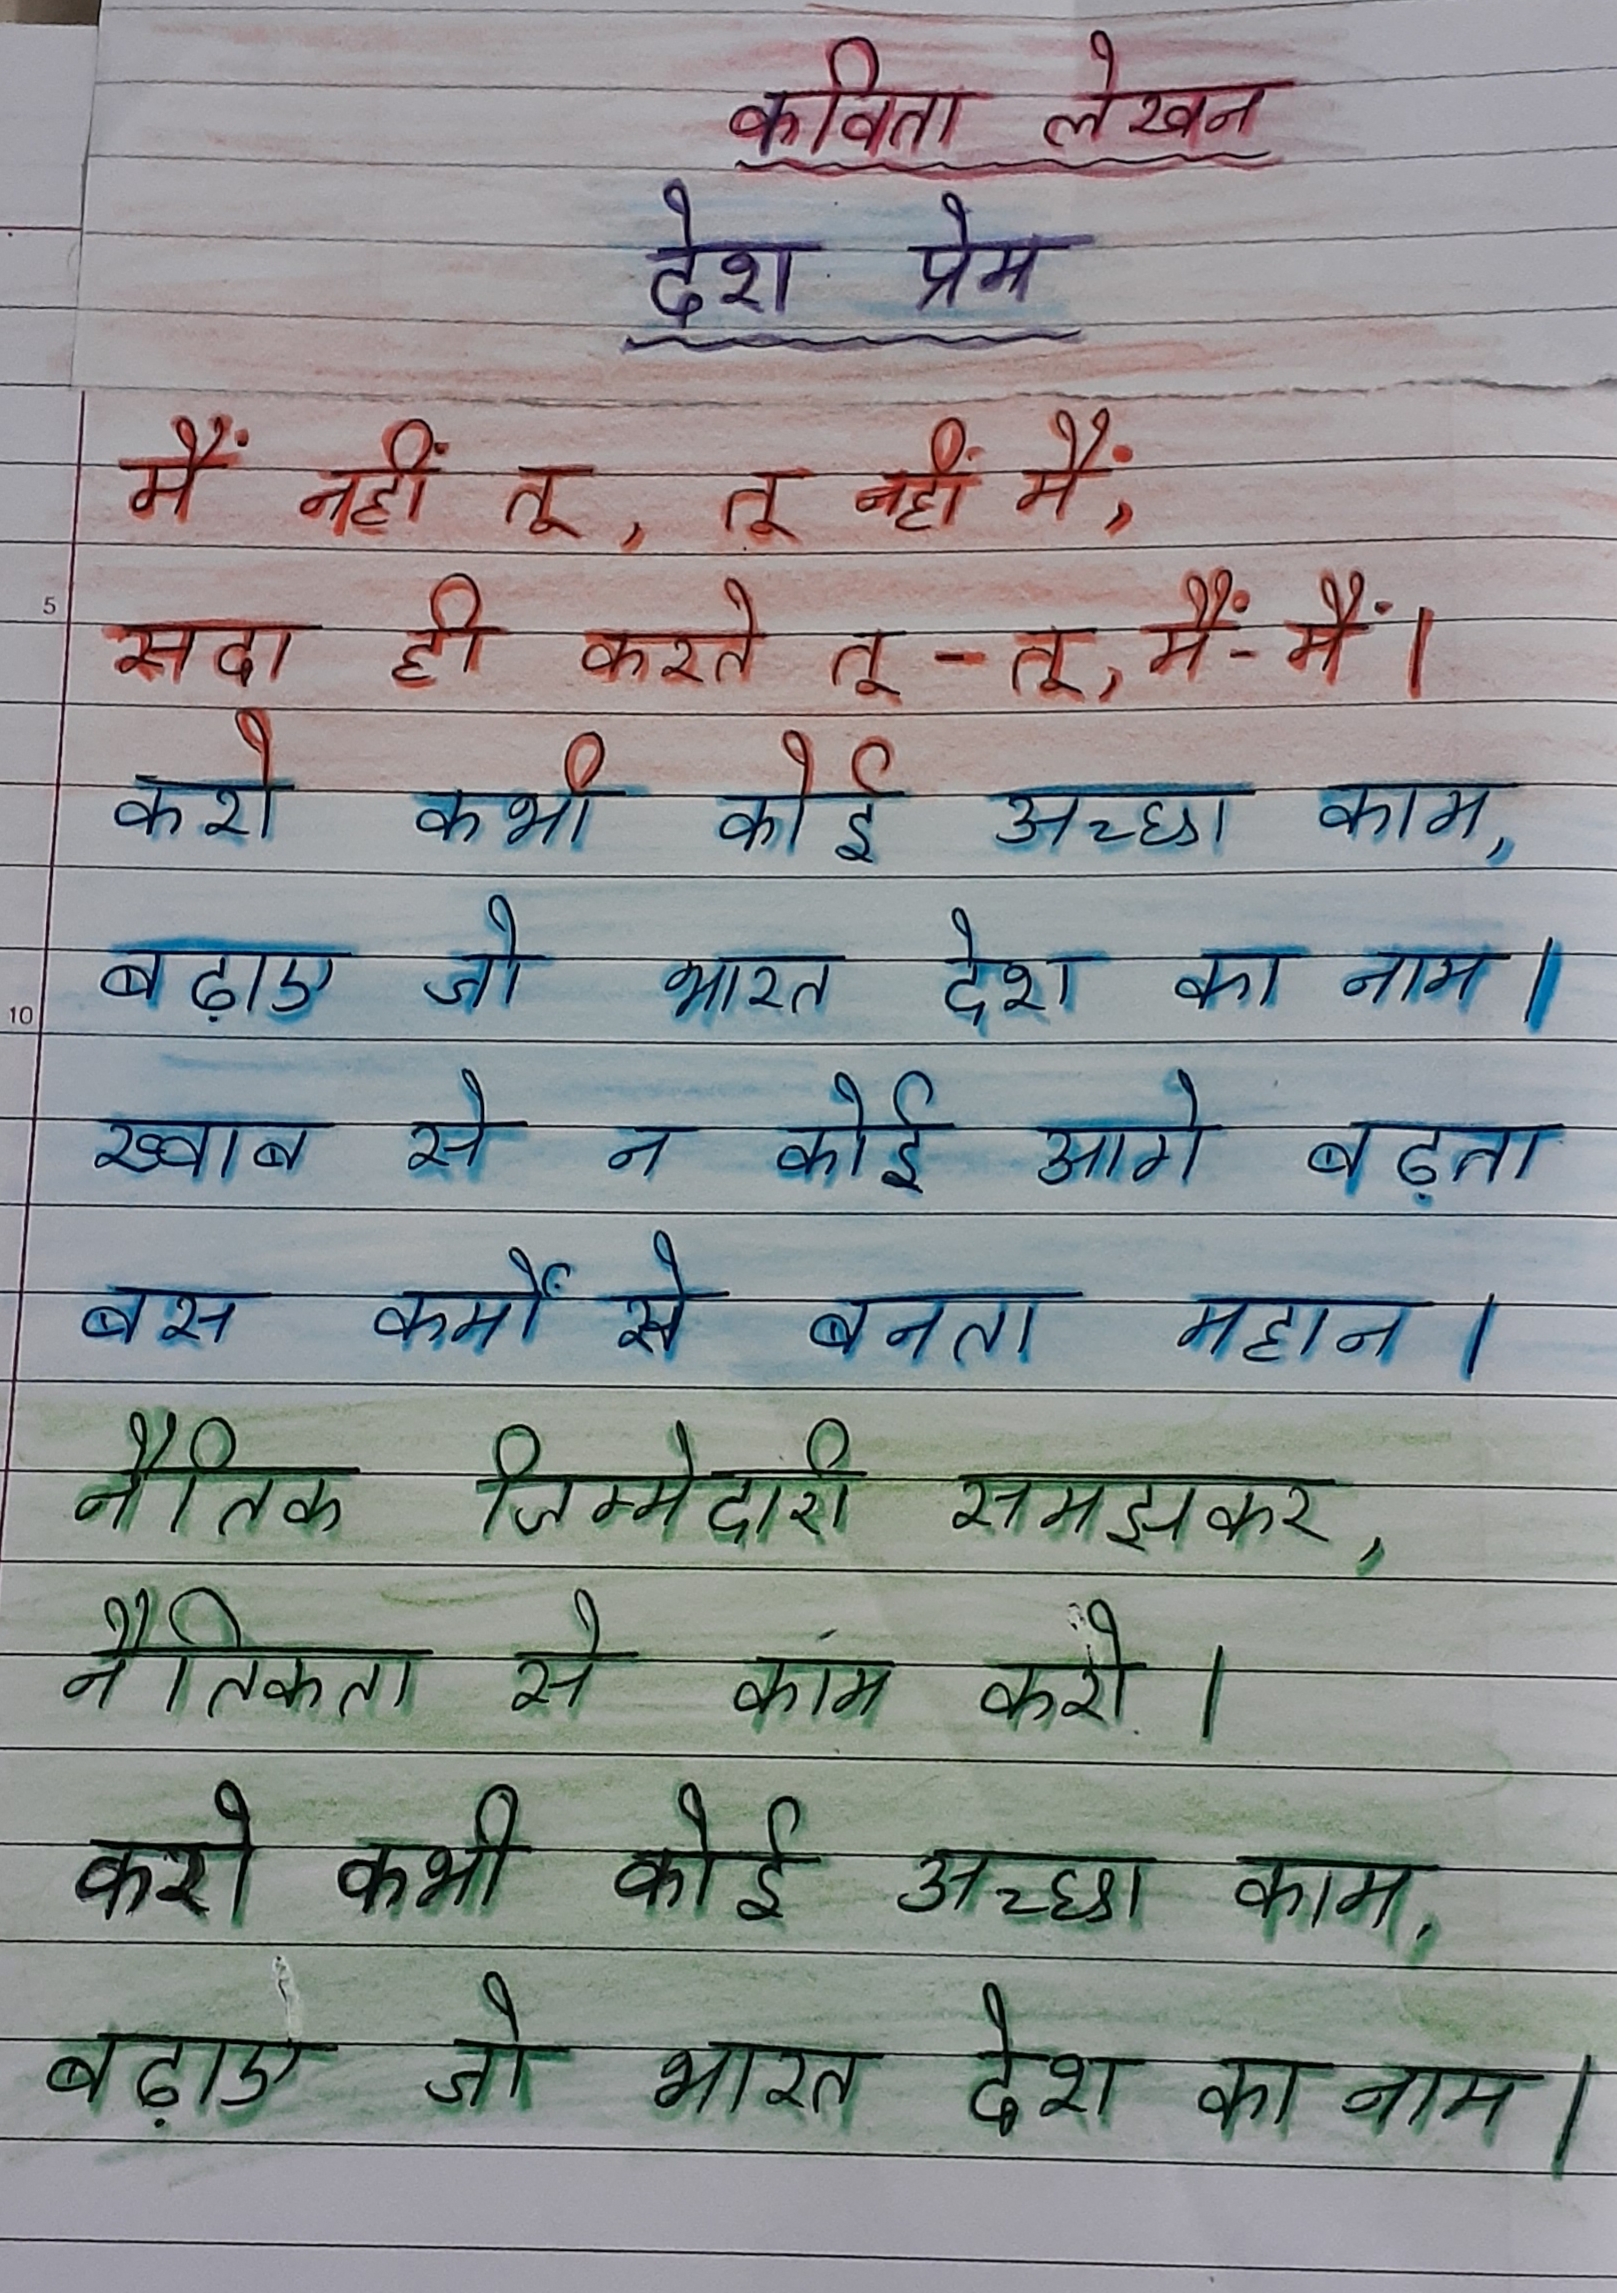 कविता लेखन
देश प्रेम
मैं नहीं तू, तू नहीं मैं,
5
सदा ही करते तू-तू, मैं-मैं।
करो कभी कोई अच्छा काम,
बढ़ाए जो भारत देश का नाम।
10
ख्वाब से न कोई आगे बढ़ता
बस कर्मों से बनता महान।
नैतिक जिम्मेदारी समझकर,
नैतिकता से कांम करो।
करो कभी कोई अच्छा काम,
बढ़ाए जो भारत देश का नाम।